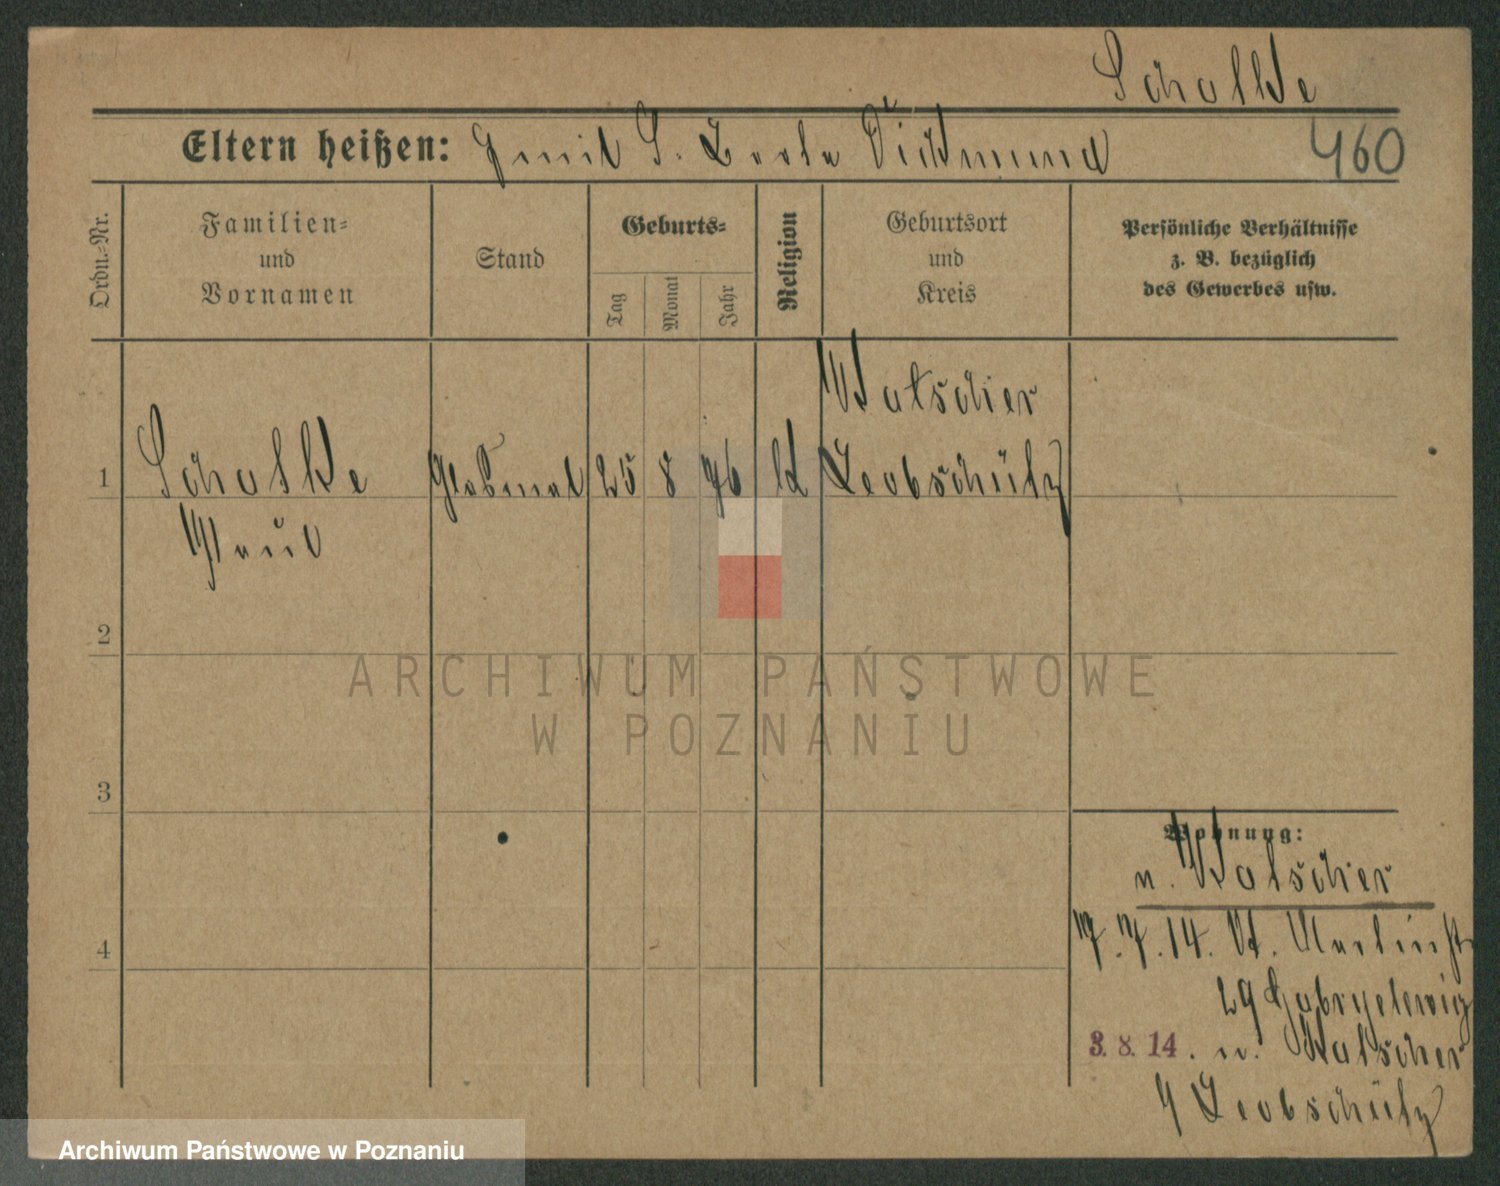 Scholtze
Eltern heißen: Emil S. Berta Dickmund
460
Ordn.-Nr.
Familien-
und
Vornamen
Stand
Geburts-
Tag
Monat
Jahr
Religion
Geburtsort
und
Kreis
Persönliche Verhältnisse
z. B. bezüglich
des Gewerbes usw.
1
25 8 96 k
Katscher
Leobschütz
Paul
2
3
4
Wohnung:
n. Katscher
7.7.14. St. Martinstr
29
3. 8. 14. n. Katscher
Leobschütz
ARCHIWUM PAŃSTWOWE
W POZNANIU
Archiwum Państwowe w Poznaniu